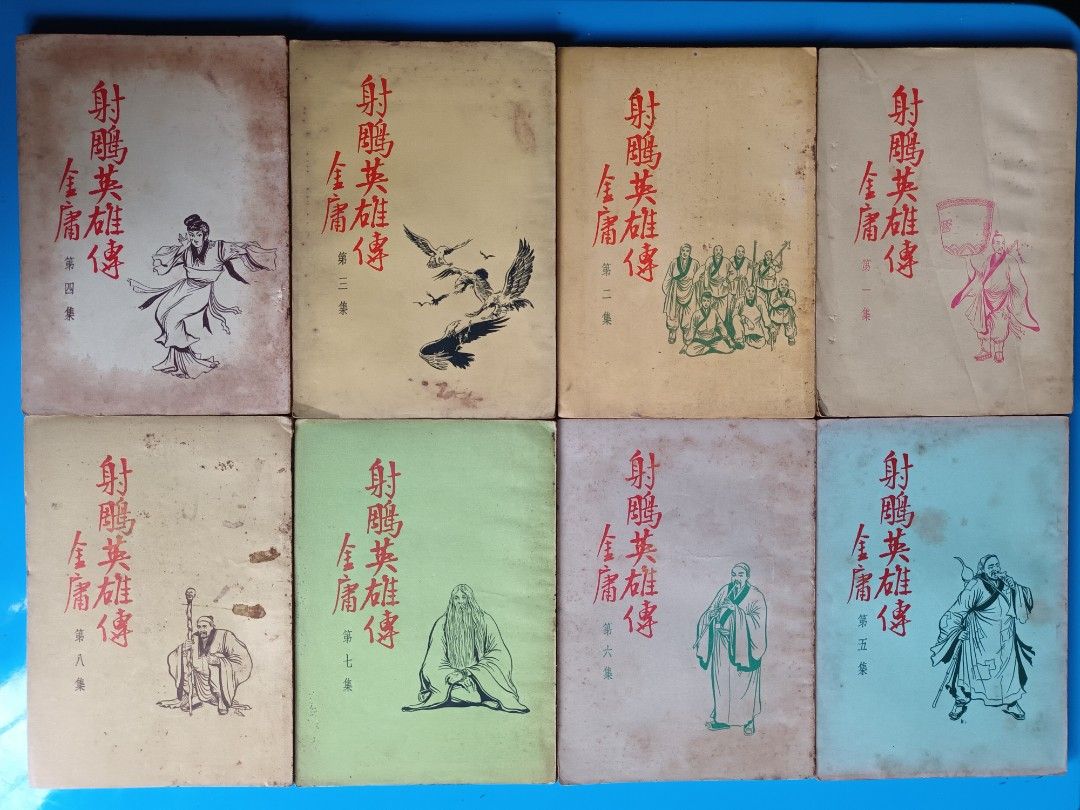 射鵰英雄傳
金庸
第一集
射鵰英雄傳
金庸
第二集
射鵰英雄傳
金庸
第三集
射鵰英雄傳
金庸
第四集
射鵰英雄傳
金庸
第五集
射鵰英雄傳
金庸
第六集
射鵰英雄傳
金庸
第七集
射鵰英雄傳
金庸
第八集